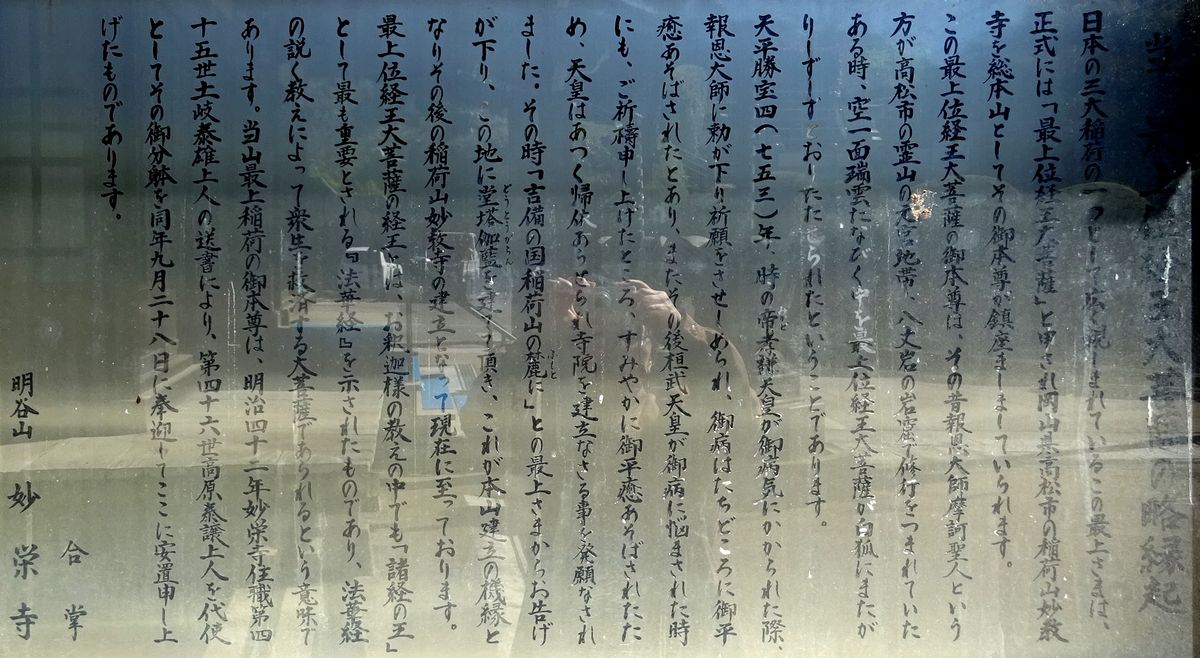 当山最上位経王大菩薩の略縁起
日本の三大稲荷の一つとして広く親しまれているこの最上さまは、
正式には「最上位経王大菩薩」と申され岡山県高松市の稲荷山妙教
寺を総本山としてその御本尊が鎮座ましましていられます。
この最上位経王大菩薩の御本尊は、その昔報恩大師摩訶聖人という
方が高松市の霊山の元宮地帯、八丈岩の岩窟で修行をつまれていた
ある時、空一面瑞雲たなびく中を最上位経王大菩薩が白狐にまたが
りしずしずとおりたたせられたということであります。
天平勝宝四(七五三)年、時の帝孝謙天皇が御病気にかかられた際、
報恩大師に勅が下り祈願をさせしめられ、御病はたちどころに御平
癒あそばされたとあり、またその後桓武天皇が御病に悩まされた時
にも、ご祈祷申し上げたところ、すみやかに御平癒あそばされたた
め、天皇はあつく帰依あらせられ寺院を建立なさる事を発願なされ
ました。その時「吉備の国稲荷山の麓に」との最上さまからお告げ
が下り、この地に堂塔伽藍を建て頂き、これが本山建立の機縁と
なりその後の稲荷山妙教寺の建立となって現在に至っております。
最上位経王大菩薩の経王とは、お釈迦様の教えの中でも「諸経の王」
として最も重要とされる『法華経』を示されたものであり、法華経
の説く教えによって衆生を救済する大菩薩であられるという意味で
あります。当山最上稲荷の御本尊は、明治四十二年妙栄寺住職第四
十五世土岐泰雄上人の送書により、第四十六世高原泰譲上人を代使
としてその御分躰を同年九月二十八日に奉迎してここに安置申し上
げたものであります。
合掌
明谷山 妙栄寺